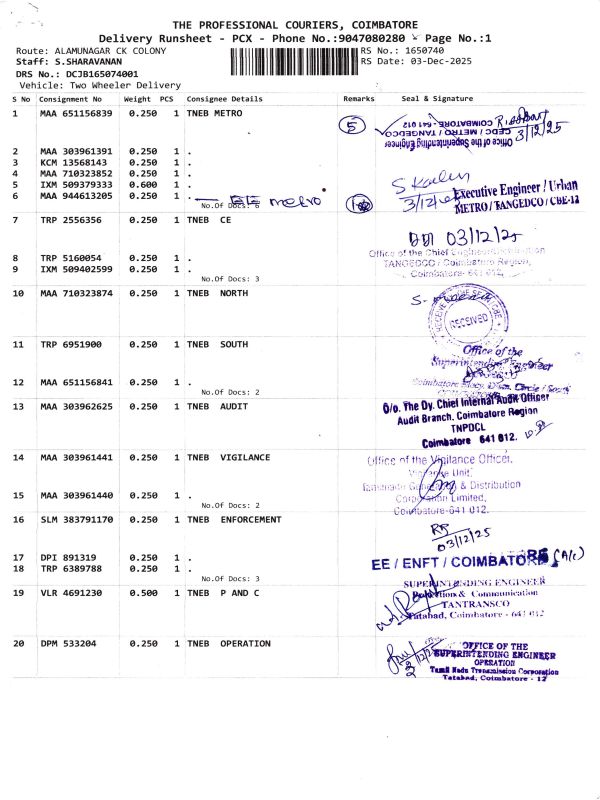 THE PROFESSIONAL COURIERS, COIMBATORE
Delivery Runsheet - PCX - Phone No.:9047080280 Page No.:1
Route: ALAMUNAGAR CK COLONY RS No.: 1650740
Staff: S.SHARAVANAN RS Date: 03-Dec-2025
DRS No.: DCJB165074001
Vehicle: Two Wheeler Delivery
S No Consignment No Weight PCS Consignee Details Remarks Seal & Signature
1 MAA 651156839 0.250 1 TNEB METRO 5
3/12/25
CEDC / METRO / TANGEDCO
COIMBATORE - 641 012
Office of the Superintending Engineer
2 MAA 303961391 0.250 1 .
3 KCM 13568143 0.250 1 .
4 MAA 710323852 0.250 1 .
5 IXM 509379333 0.600 1 .
6 MAA 944613205 0.250 1 . EE metro
No.Of Docs: 6
Executive Engineer / Urban
METRO / TANGEDCO / CBE-12
7 TRP 2556356 0.250 1 TNEB CE
03/12/25
8 TRP 5160054 0.250 1 .
9 IXM 509402599 0.250 1 .
No.Of Docs: 3
Office of the Chief Engineer
TANGEDCO / Coimbatore Region,
Coimbatore- 641 012.
10 MAA 710323874 0.250 1 TNEB NORTH
RECEIVED
11 TRP 6951900 0.250 1 TNEB SOUTH
Office of the
Superintending Engineer
12 MAA 651156841 0.250 1 .
No.Of Docs: 2
13 MAA 303962625 0.250 1 TNEB AUDIT
O/o. The Dy. Chief Internal Audit Officer
Audit Branch, Coimbatore Region
TNPDCL
Coimbatore 641 012.
14 MAA 303961441 0.250 1 TNEB VIGILANCE
Office of the Vigilance Officer,
Vigilance Unit,
& Distribution
Corporation Limited,
Coimbatore-641 012.
15 MAA 303961440 0.250 1 .
No.Of Docs: 2
16 SLM 383791170 0.250 1 TNEB ENFORCEMENT
03/12/25
17 DPI 891319 0.250 1 .
18 TRP 6389788 0.250 1 .
No.Of Docs: 3
EE / ENFT / COIMBATORE
19 VLR 4691230 0.500 1 TNEB P AND C
SUPERINTENDING ENGINEER
Protection & Communication
TANTRANSCO
Tatabad, Coimbatore - 641 012
20 DPM 533204 0.250 1 TNEB OPERATION
OFFICE OF THE
SUPERINTENDING ENGINEER
OPERATION
Tamil Nadu Transmission Corporation
Tatabad, Coimbatore - 12